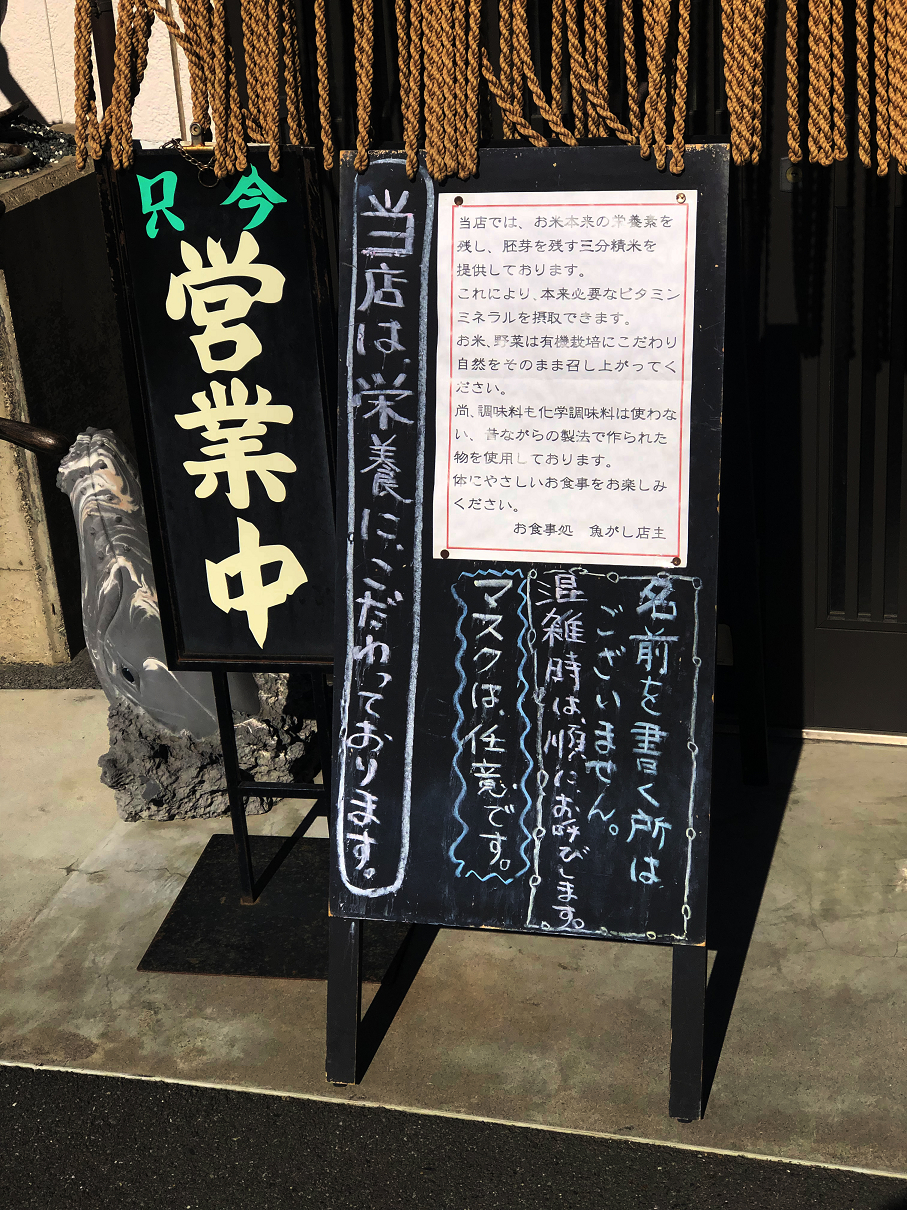 只今
営業中
当店は、栄養に、こだわっております。
当店では、お米本来の栄養素を
残し、胚芽を残す三分積米を
提供しております。
これにより、本来必要なビタミン
ミネラルを摂取できます。
お米、野菜は有機栽培にこだわり
自然をそのまま召し上がってく
ださい。
尚、調味料も化学調味料は使わな
い、昔ながらの製法で作られた
物を使用しております。
体にやさしいお食事をお楽しみ
ください。
お食事処 魚がし店主
名前を書く所は
ございません。
混雑時は、順に、お呼びします。
マスクは、任意です。